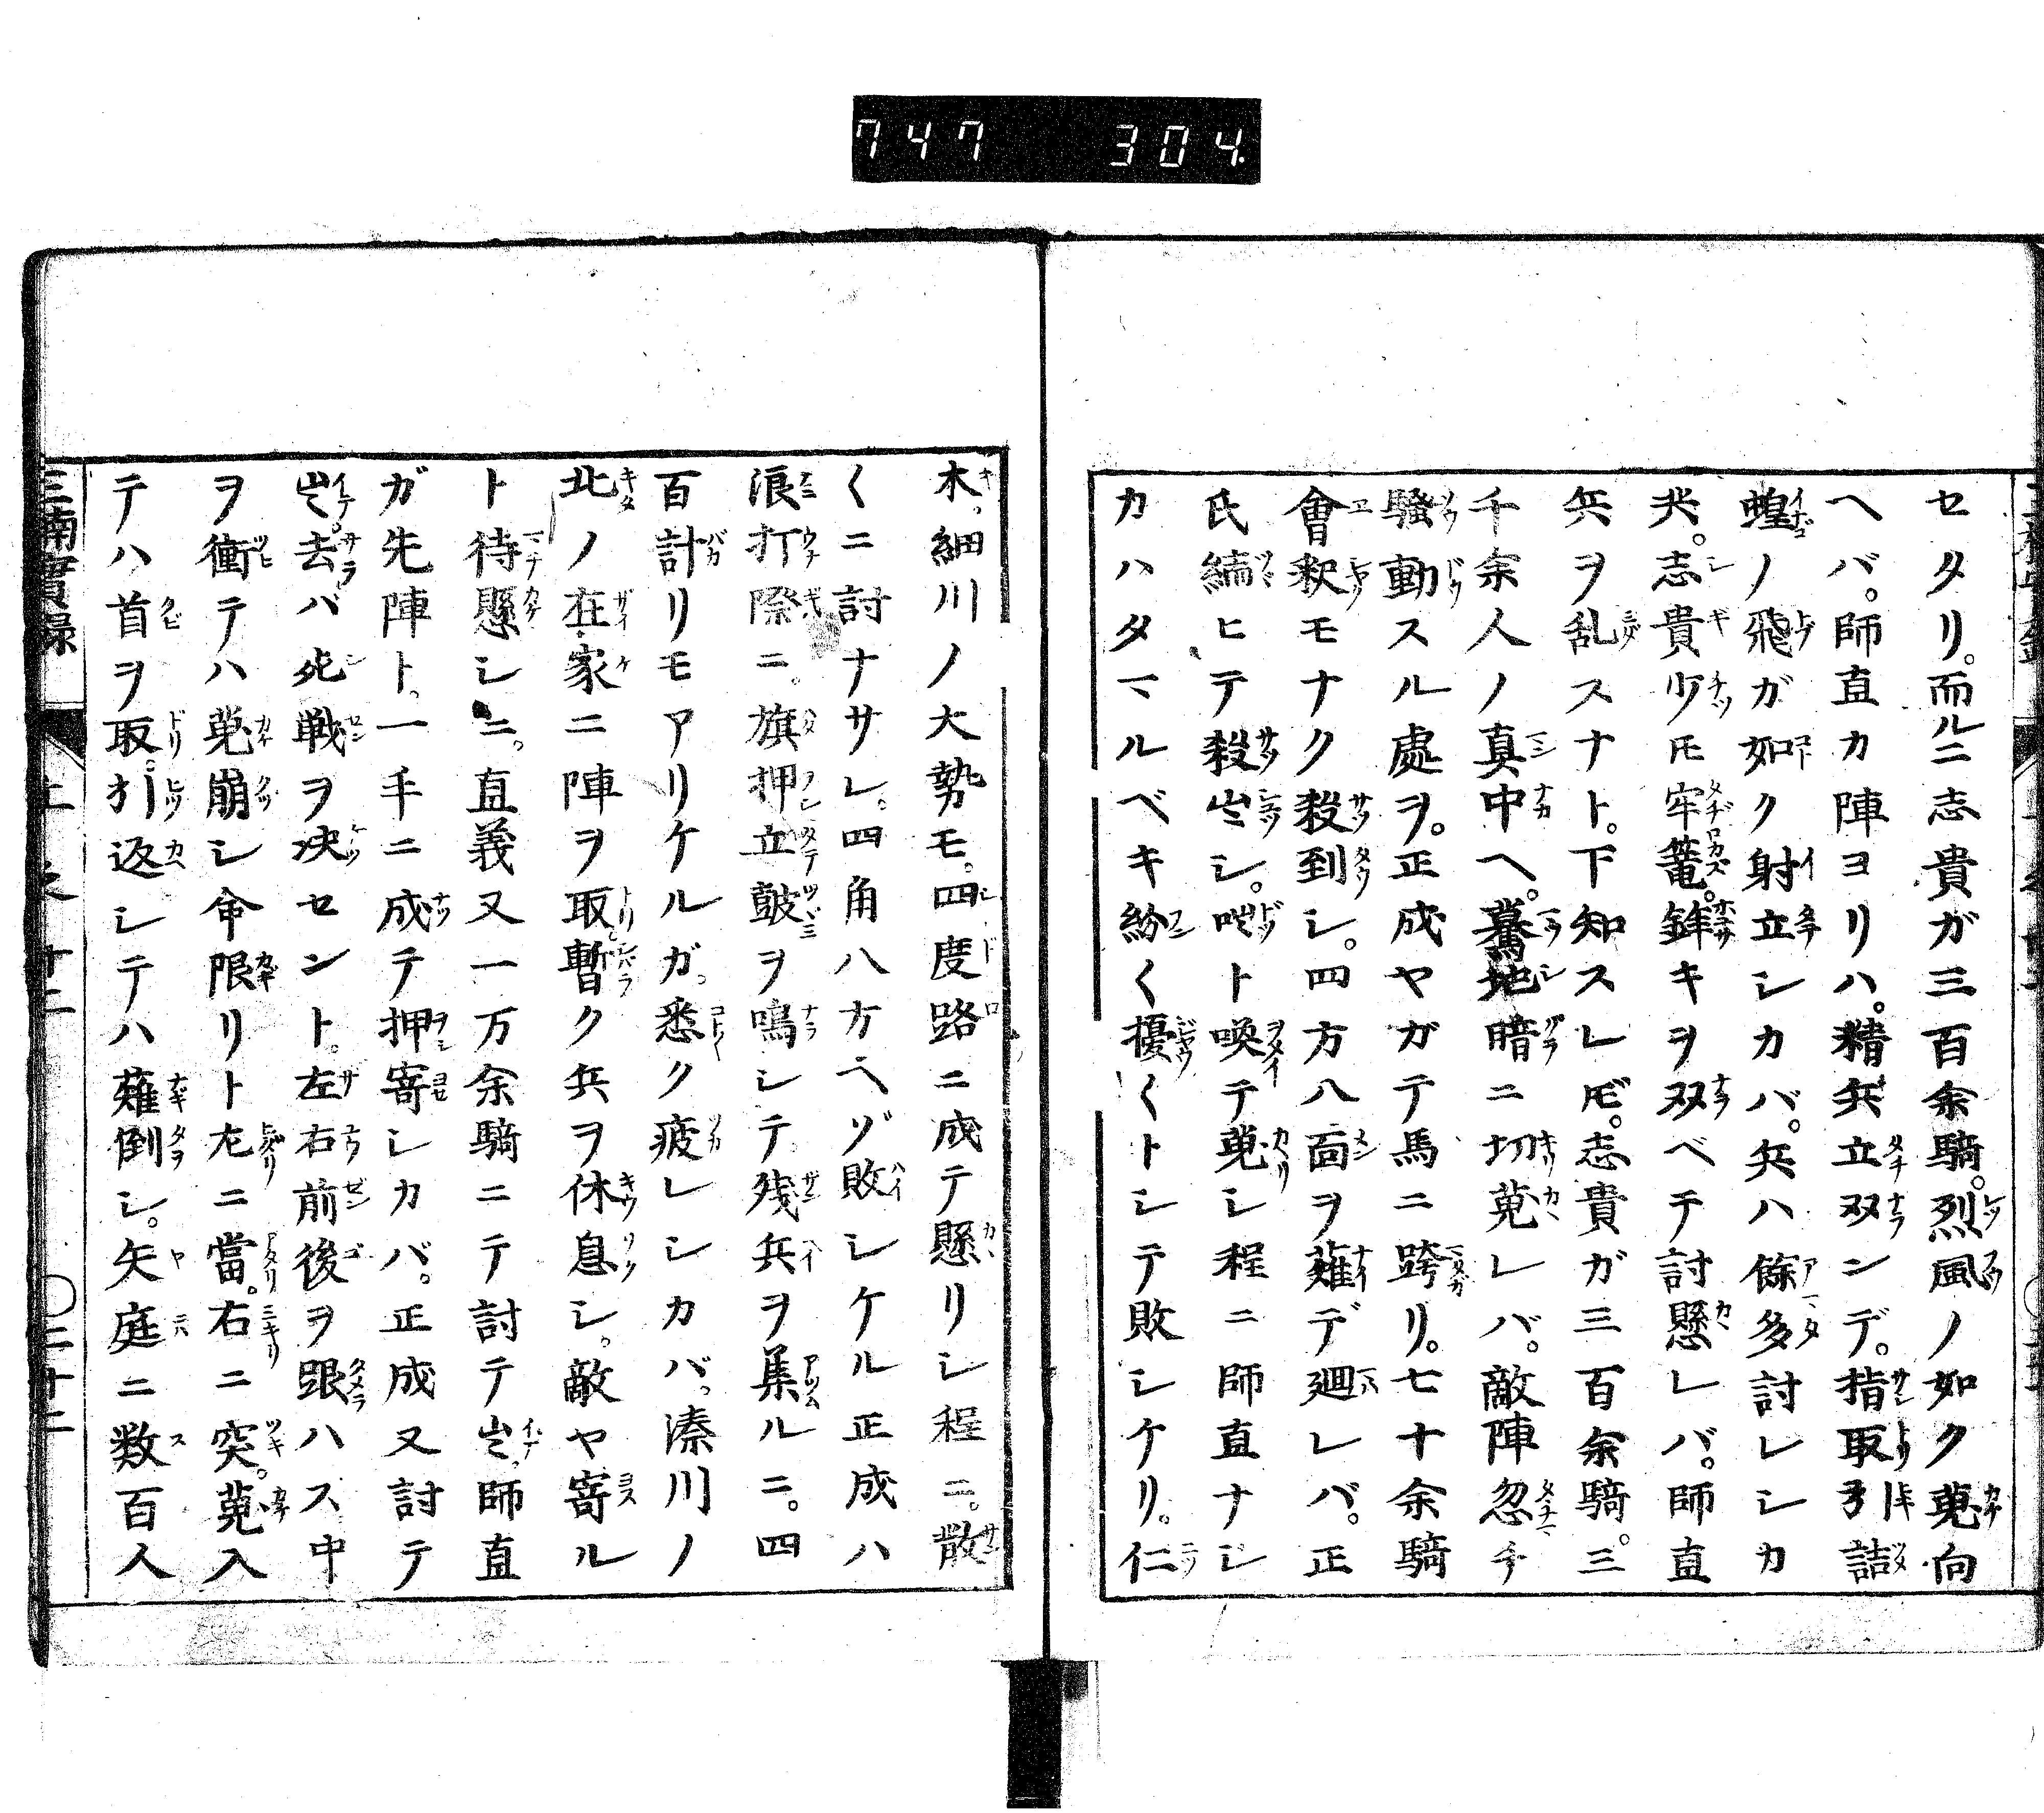 747 304
セタリ。而ルニ志貴ガ三百余騎。烈風ノ如ク蒐向
ヘバ。師直カ陣ヨリハ。精兵立双ンデ。指取引詰
蝗ノ飛ガ如ク射立シカバ。兵ハ餘多討レシカ
共。志貴少モ牢篭。鉾キヲ双ベテ討懸レバ。師直
兵ヲ乱スナト。下知スレ𪜈。志貴ガ三百余騎。三
千余人ノ真中ヘ。驀地暗ニ切蒐レバ。敵陣忽チ
騒動スル處ヲ。正成ヤガテ馬ニ跨リ。七十余騎
會釈モナク殺到シ。四方八面ヲ薙デ廻レバ。正
氏続ヒテ殺出シ。吐ト喚テ蒐シ程ニ師直ナジ
カハタマルベキ紛〱擾〱トシテ敗シケリ。仁
木。細川ノ大勢モ。四度路ニ成テ懸リシ程ニ。散
〱ニ討ナサレ。四角八方ヘゾ敗シケル正成ハ
浪打際ニ。旗押立皷ヲ鳴シテ残兵ヲ集ルニ。四
百計リモアリケルガ。悉ク疲レシカバ。湊川ノ
北ノ在家ニ陣ヲ取。暫ク兵ヲ休息シ。敵ヤ寄ル
ト待懸シニ。直義又一万余騎ニテ討テ出。師直
ガ先陣ト。一手ニ成テ押寄シカバ。正成又討テ
出。去バ死戦ヲ决セント。左右前後ヲ眼ハス中
ヲ衝テハ蒐崩シ命限リト左ニ當。右ニ突。蒐入
テハ首ヲ取。引返シテハ薙倒シ。矢庭ニ数百人
三楠實録 上之十二 〇三十二